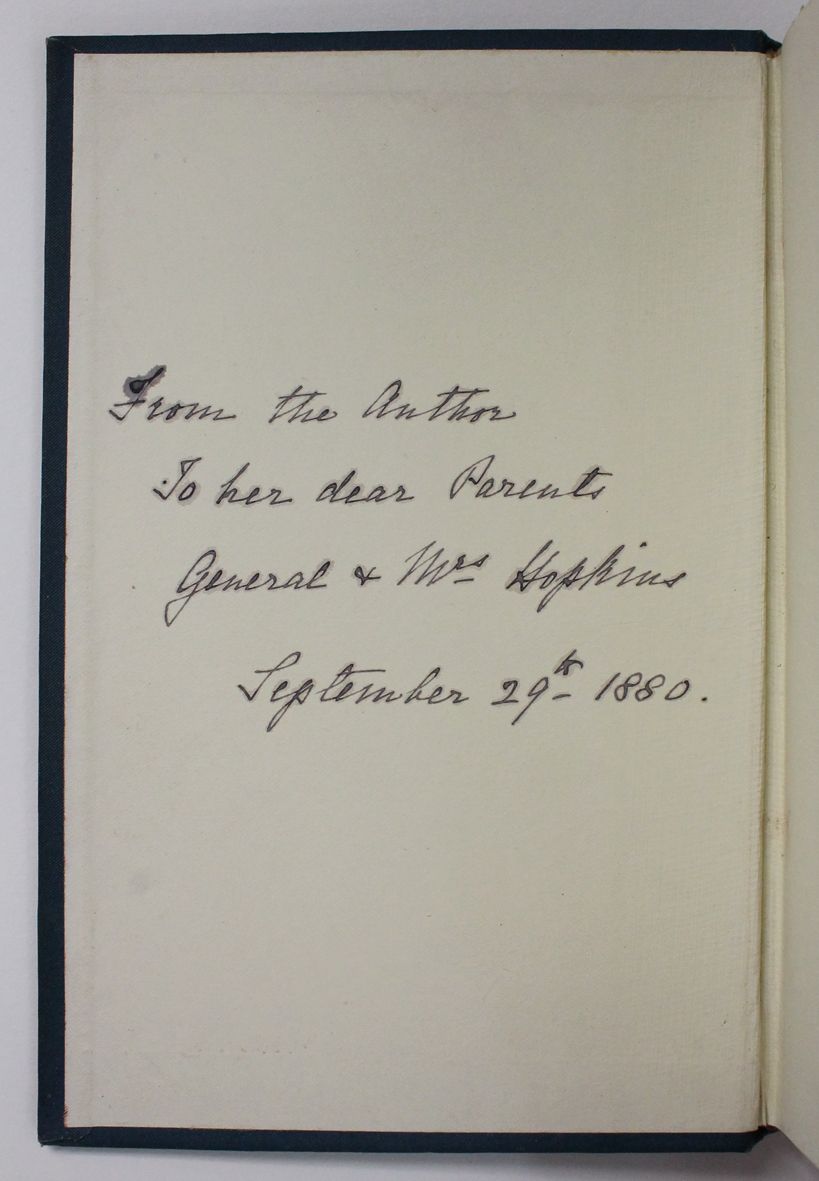 From the Author
To her dear Parents
General & Mrs Hopkins
September 29th 1880.